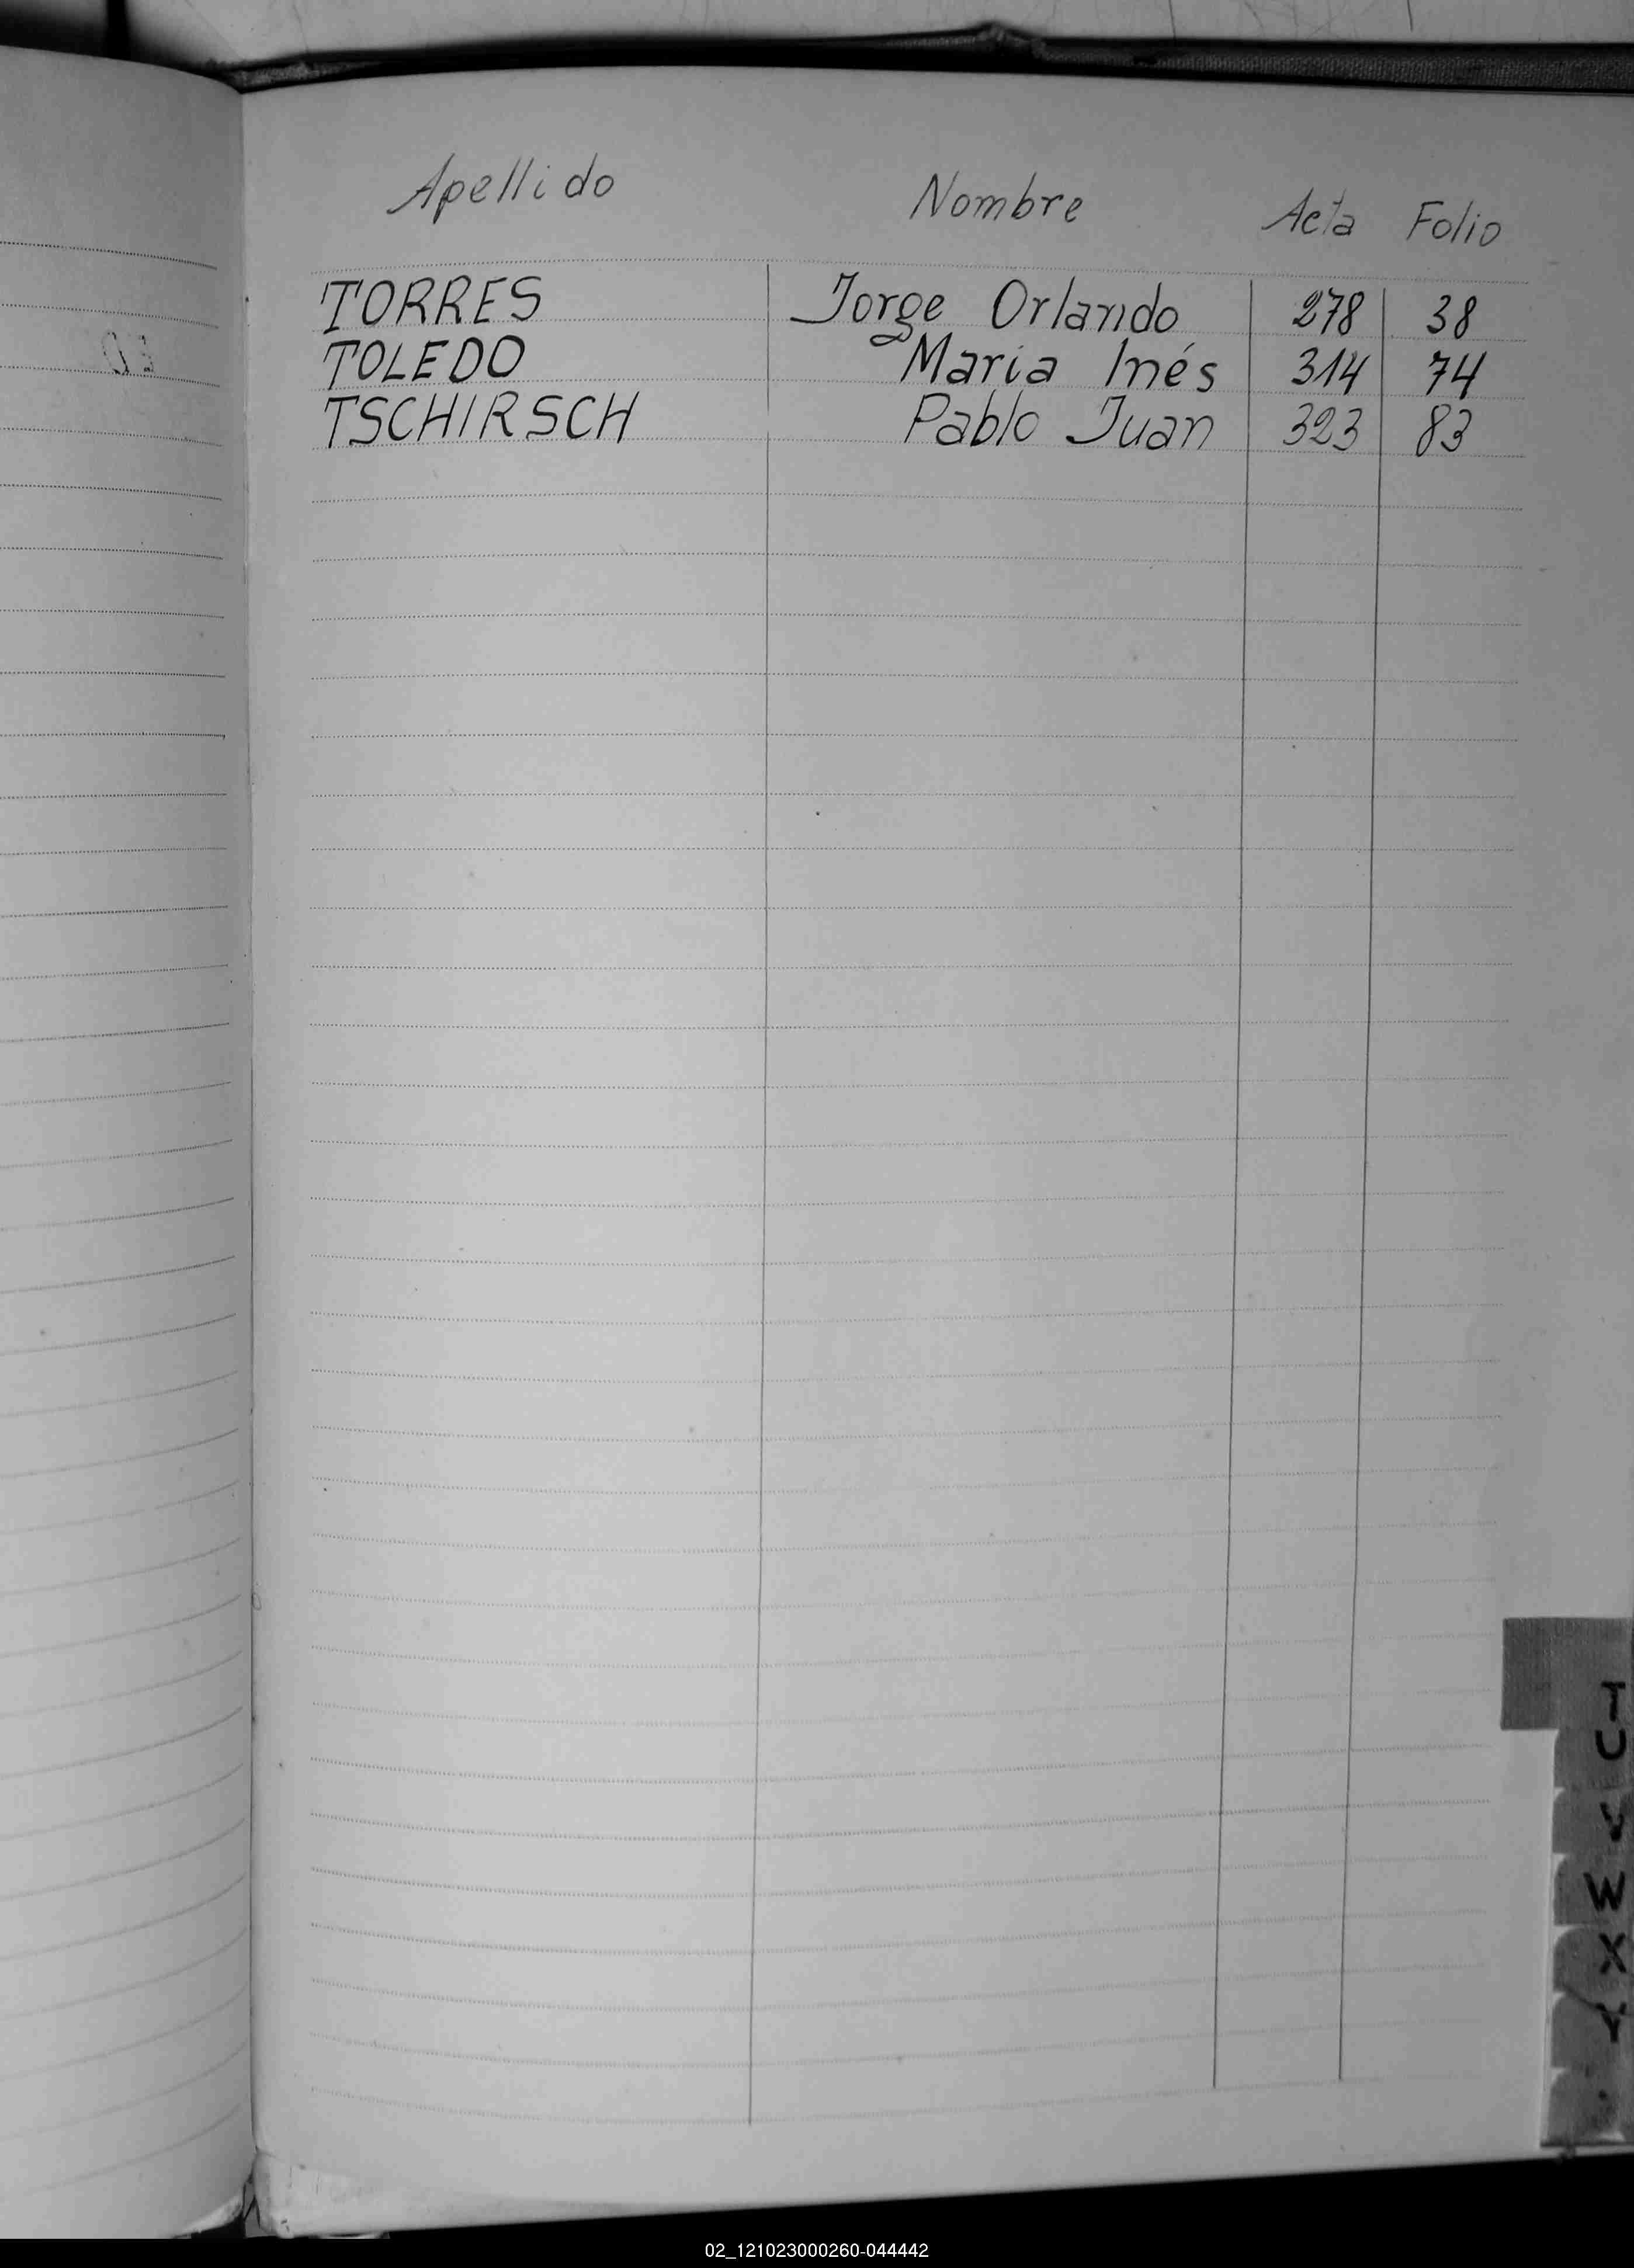 Apellido Nombre Acta Folio
TORRES Jorge Orlando 278 38
TOLEDO Maria Inés 314 74
TSCHIRSCH Pablo Juan 323 83
T
U
V
W
X
Y
02_121023000260-044442